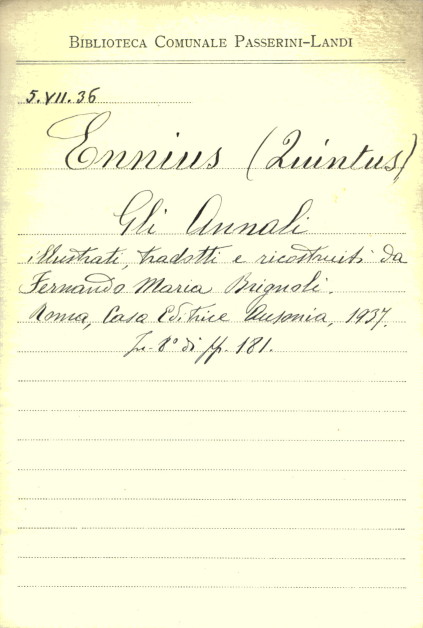 BIBLIOTECA COMUNALE PASSERINI-LANDI
5.VII.36
Ennius (Quintus)
Gli Annali
illustrati, tradotti e ricostruiti da
Fernando Maria Brignoli.
Roma, Casa Editrice Ausonia, 1937.
In-8° di pp. 181.